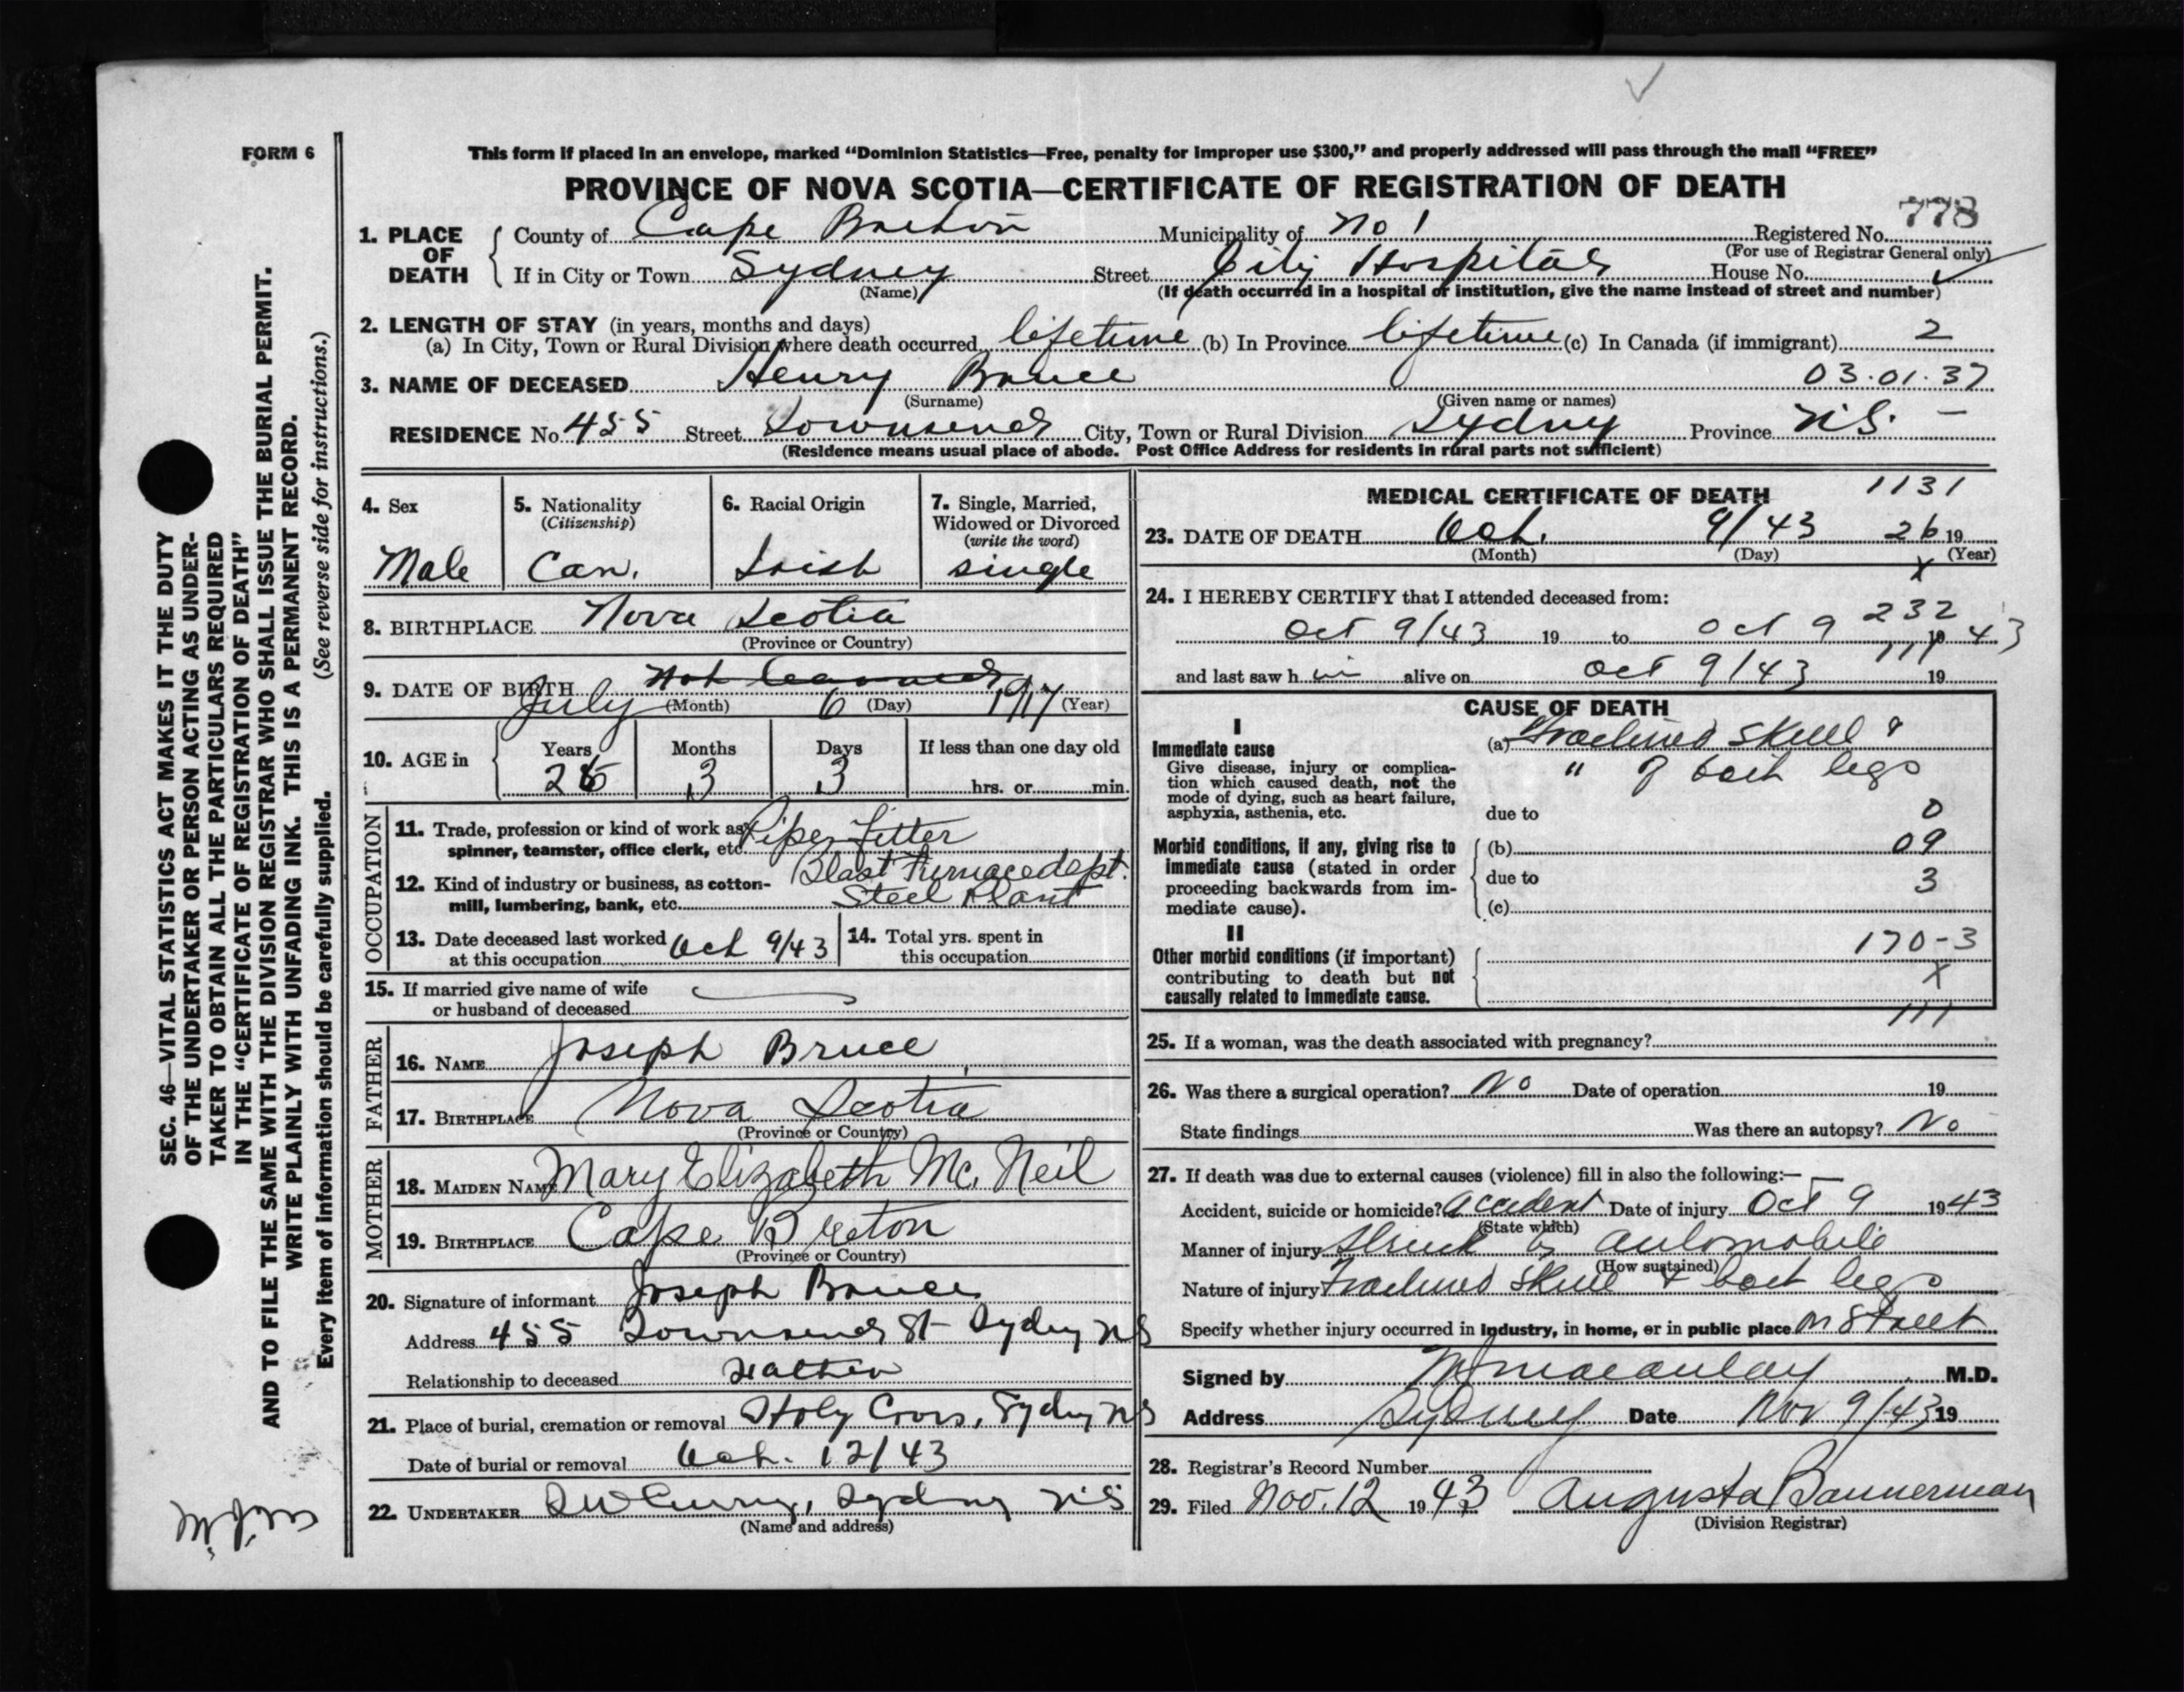 FORM 6
This form if placed in an envelope, marked “Dominion Statistics—Free, penalty for improper use $300,” and properly addressed will pass through the mail “FREE”
PROVINCE OF NOVA SCOTIA—CERTIFICATE OF REGISTRATION OF DEATH
778
1. PLACE OF DEATH County of Cape Breton Municipality of No 1 Registered No.
(For use of Registrar General only)
If in City or Town Sydney Street City Hospital House No.
(Name) (If death occurred in a hospital or institution, give the name instead of street and number)
2. LENGTH OF STAY (in years, months and days)
(a) In City, Town or Rural Division where death occurred lifetime (b) In Province lifetime (c) In Canada (if immigrant) 2
3. NAME OF DECEASED Henry Bruce 03.01.37
(Surname) (Given name or names)
RESIDENCE No. 455 Street Townsend City, Town or Rural Division Sydney Province N.S. —
(Residence means usual place of abode. Post Office Address for residents in rural parts not sufficient)
4. Sex
Male
5. Nationality
(Citizenship)
Can.
6. Racial Origin
Irish
7. Single, Married,
Widowed or Divorced
(write the word)
single
8. BIRTHPLACE Nova Scotia
(Province or Country)
9. DATE OF BIRTH
July (Month) 6 (Day) 1917 (Year)
10. AGE in
Years Months Days If less than one day old
26 3 3 hrs. or min.
OCCUPATION
11. Trade, profession or kind of work as Pipe Fitter
spinner, teamster, office clerk, etc.
12. Kind of industry or business, as cotton- Blast Furnace dept.
mill, lumbering, bank, etc. Steel Plant
13. Date deceased last worked Oct 9/43
at this occupation
14. Total yrs. spent in
this occupation
15. If married give name of wife
or husband of deceased
FATHER
16. NAME Joseph Bruce
17. BIRTHPLACE Nova Scotia
(Province or Country)
MOTHER
18. MAIDEN NAME Mary Elizabeth Mc. Neil
19. BIRTHPLACE Cape Breton
(Province or Country)
20. Signature of informant Joseph Bruce
Address 455 Townsend St Sydney NS
Relationship to deceased Father
21. Place of burial, cremation or removal Holy Cross, Sydney NS
Date of burial or removal Oct. 12/43
22. UNDERTAKER Curry, Sydney NS
(Name and address)
MEDICAL CERTIFICATE OF DEATH 1131
23. DATE OF DEATH Oct. 9/43 26 19
(Month) (Day) (Year)
X
24. I HEREBY CERTIFY that I attended deceased from:
232
Oct 9/43 19 to Oct 9 19 43
111
and last saw h im alive on Oct 9/43 19
CAUSE OF DEATH
I
Immediate cause (a) Fractured Skull &
Give disease, injury or complica- " of both legs
tion which caused death, not the
mode of dying, such as heart failure,
asphyxia, asthenia, etc. due to 0
Morbid conditions, if any, giving rise to (b) 09
immediate cause (stated in order due to 3
proceeding backwards from im-
mediate cause). (c)
II
Other morbid conditions (if important) 170-3
contributing to death but not X
causally related to immediate cause.
111
25. If a woman, was the death associated with pregnancy?
26. Was there a surgical operation? No Date of operation 19
State findings Was there an autopsy? No
27. If death was due to external causes (violence) fill in also the following:—
Accident, suicide or homicide? accident Date of injury Oct 9 1943
(State which)
Manner of injury Struck by automobile
(How sustained)
Nature of injury Fractured Skull & both legs
Specify whether injury occurred in industry, in home, or in public place on Street
Signed by Macaulay M.D.
Address Sydney Date Nov 9/43 19
28. Registrar's Record Number
29. Filed Nov. 12 1943 Augusta Bannerman
(Division Registrar)
SEC. 46—VITAL STATISTICS ACT MAKES IT THE DUTY
OF THE UNDERTAKER OR PERSON ACTING AS UNDER-
TAKER TO OBTAIN ALL THE PARTICULARS REQUIRED
IN THE “CERTIFICATE OF REGISTRATION OF DEATH”
AND TO FILE THE SAME WITH THE DIVISION REGISTRAR WHO SHALL ISSUE THE BURIAL PERMIT.
WRITE PLAINLY WITH UNFADING INK. THIS IS A PERMANENT RECORD.
Every item of information should be carefully supplied. (See reverse side for instructions.)